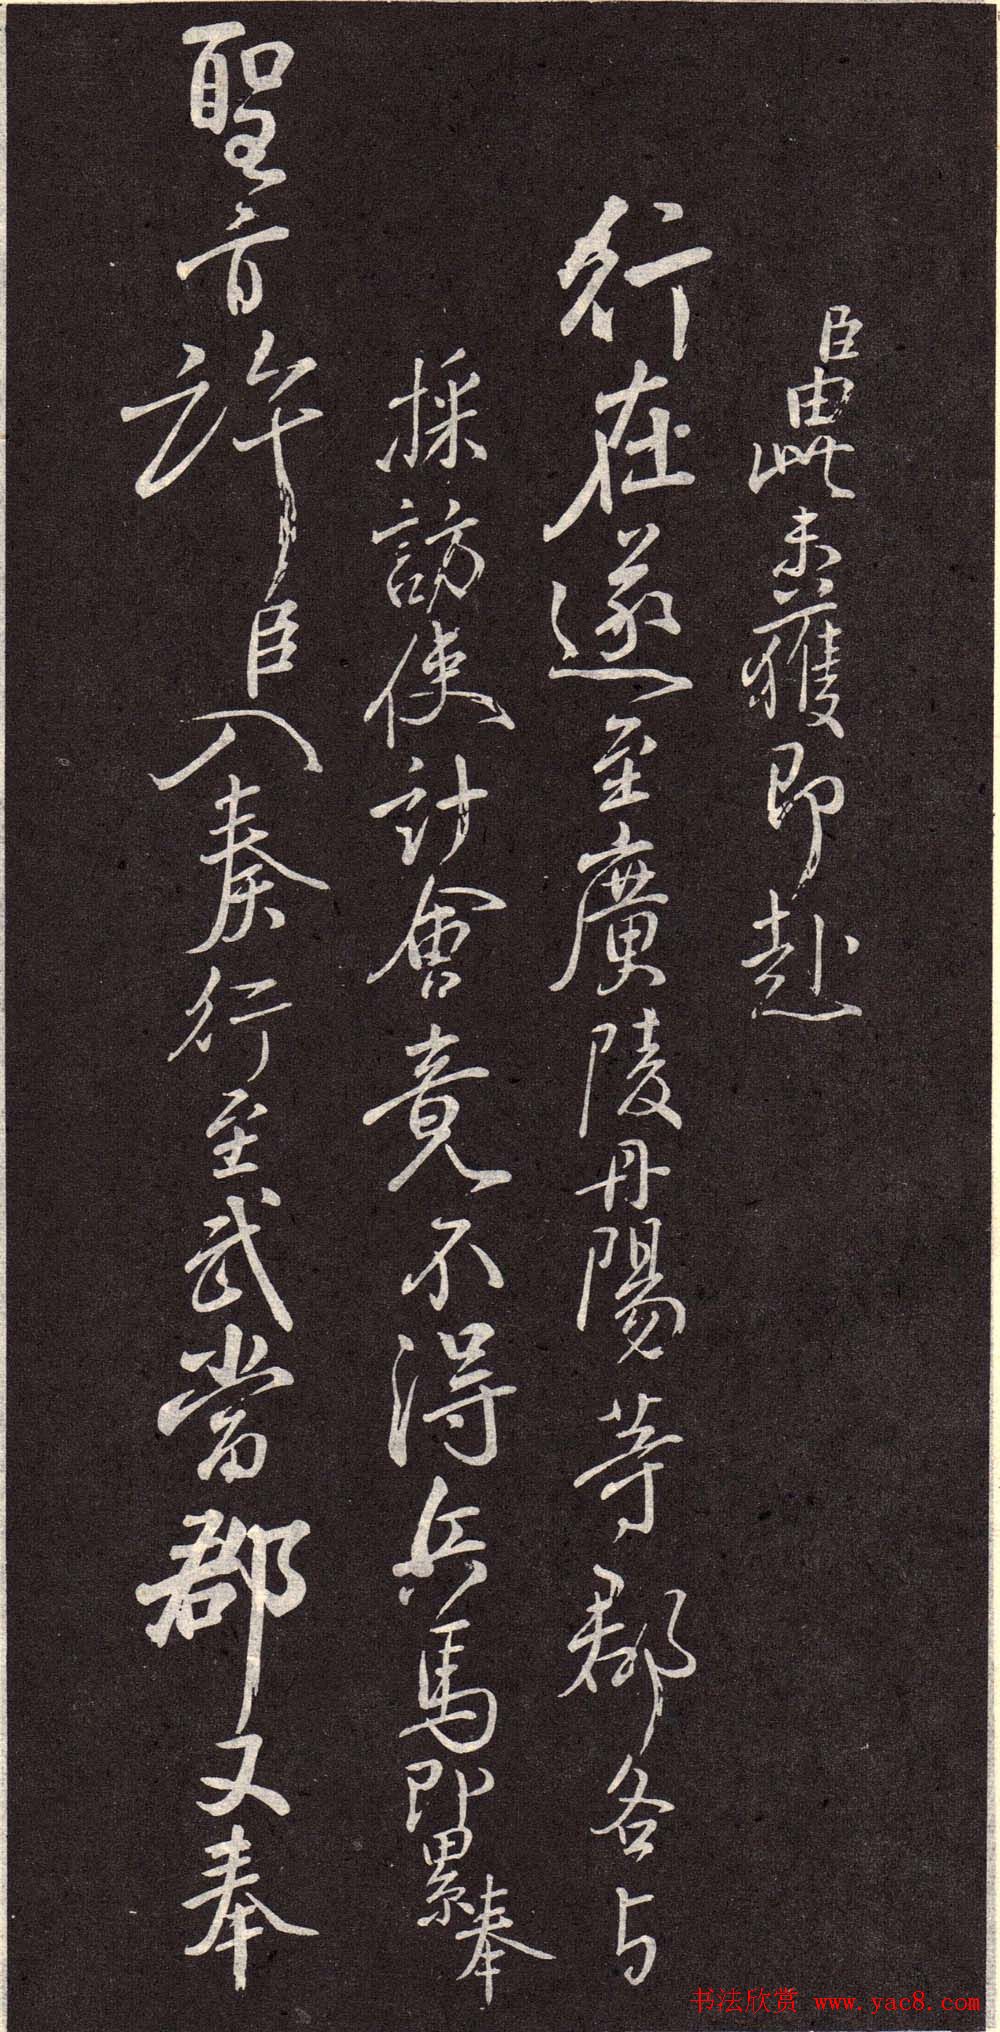 臣由此未獲即赴
行在遂至廣陵丹陽等郡各与
採訪使計會竟不得兵馬即累奉
聖旨許臣入奏行至武當郡又奉
书法欣赏 www.yac8.com